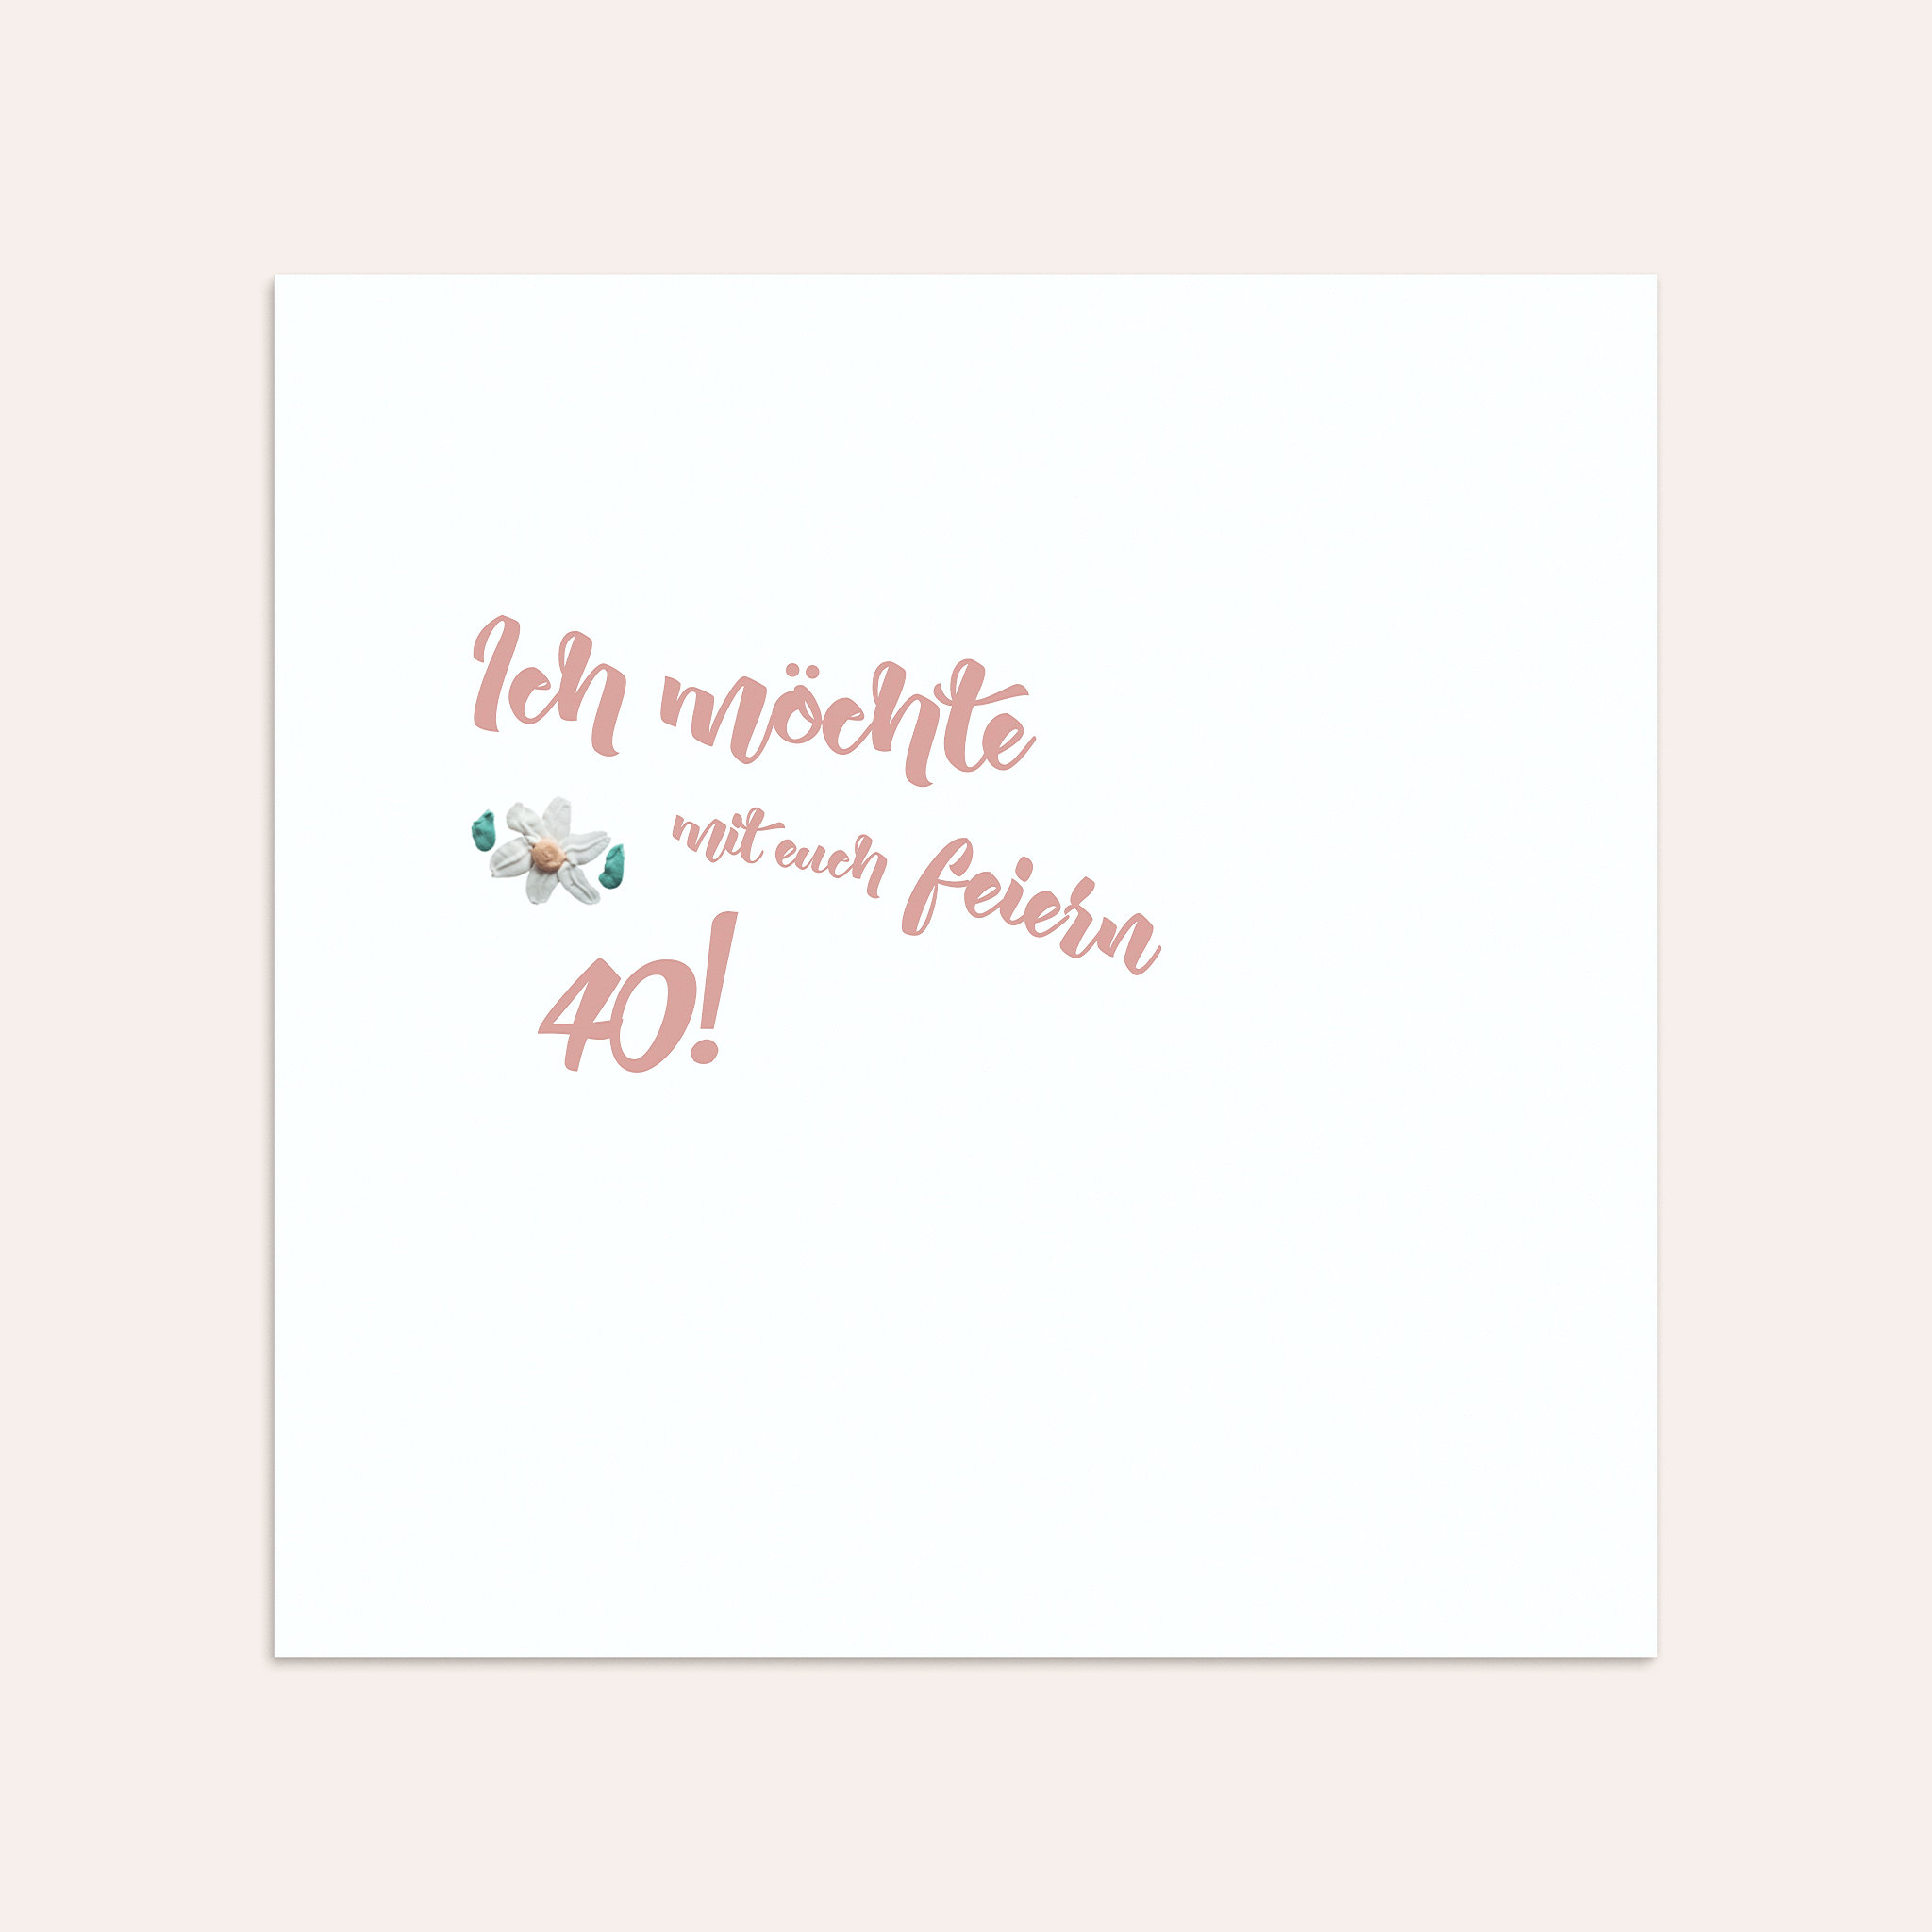 Ich möchte
mit euch feiern
40!